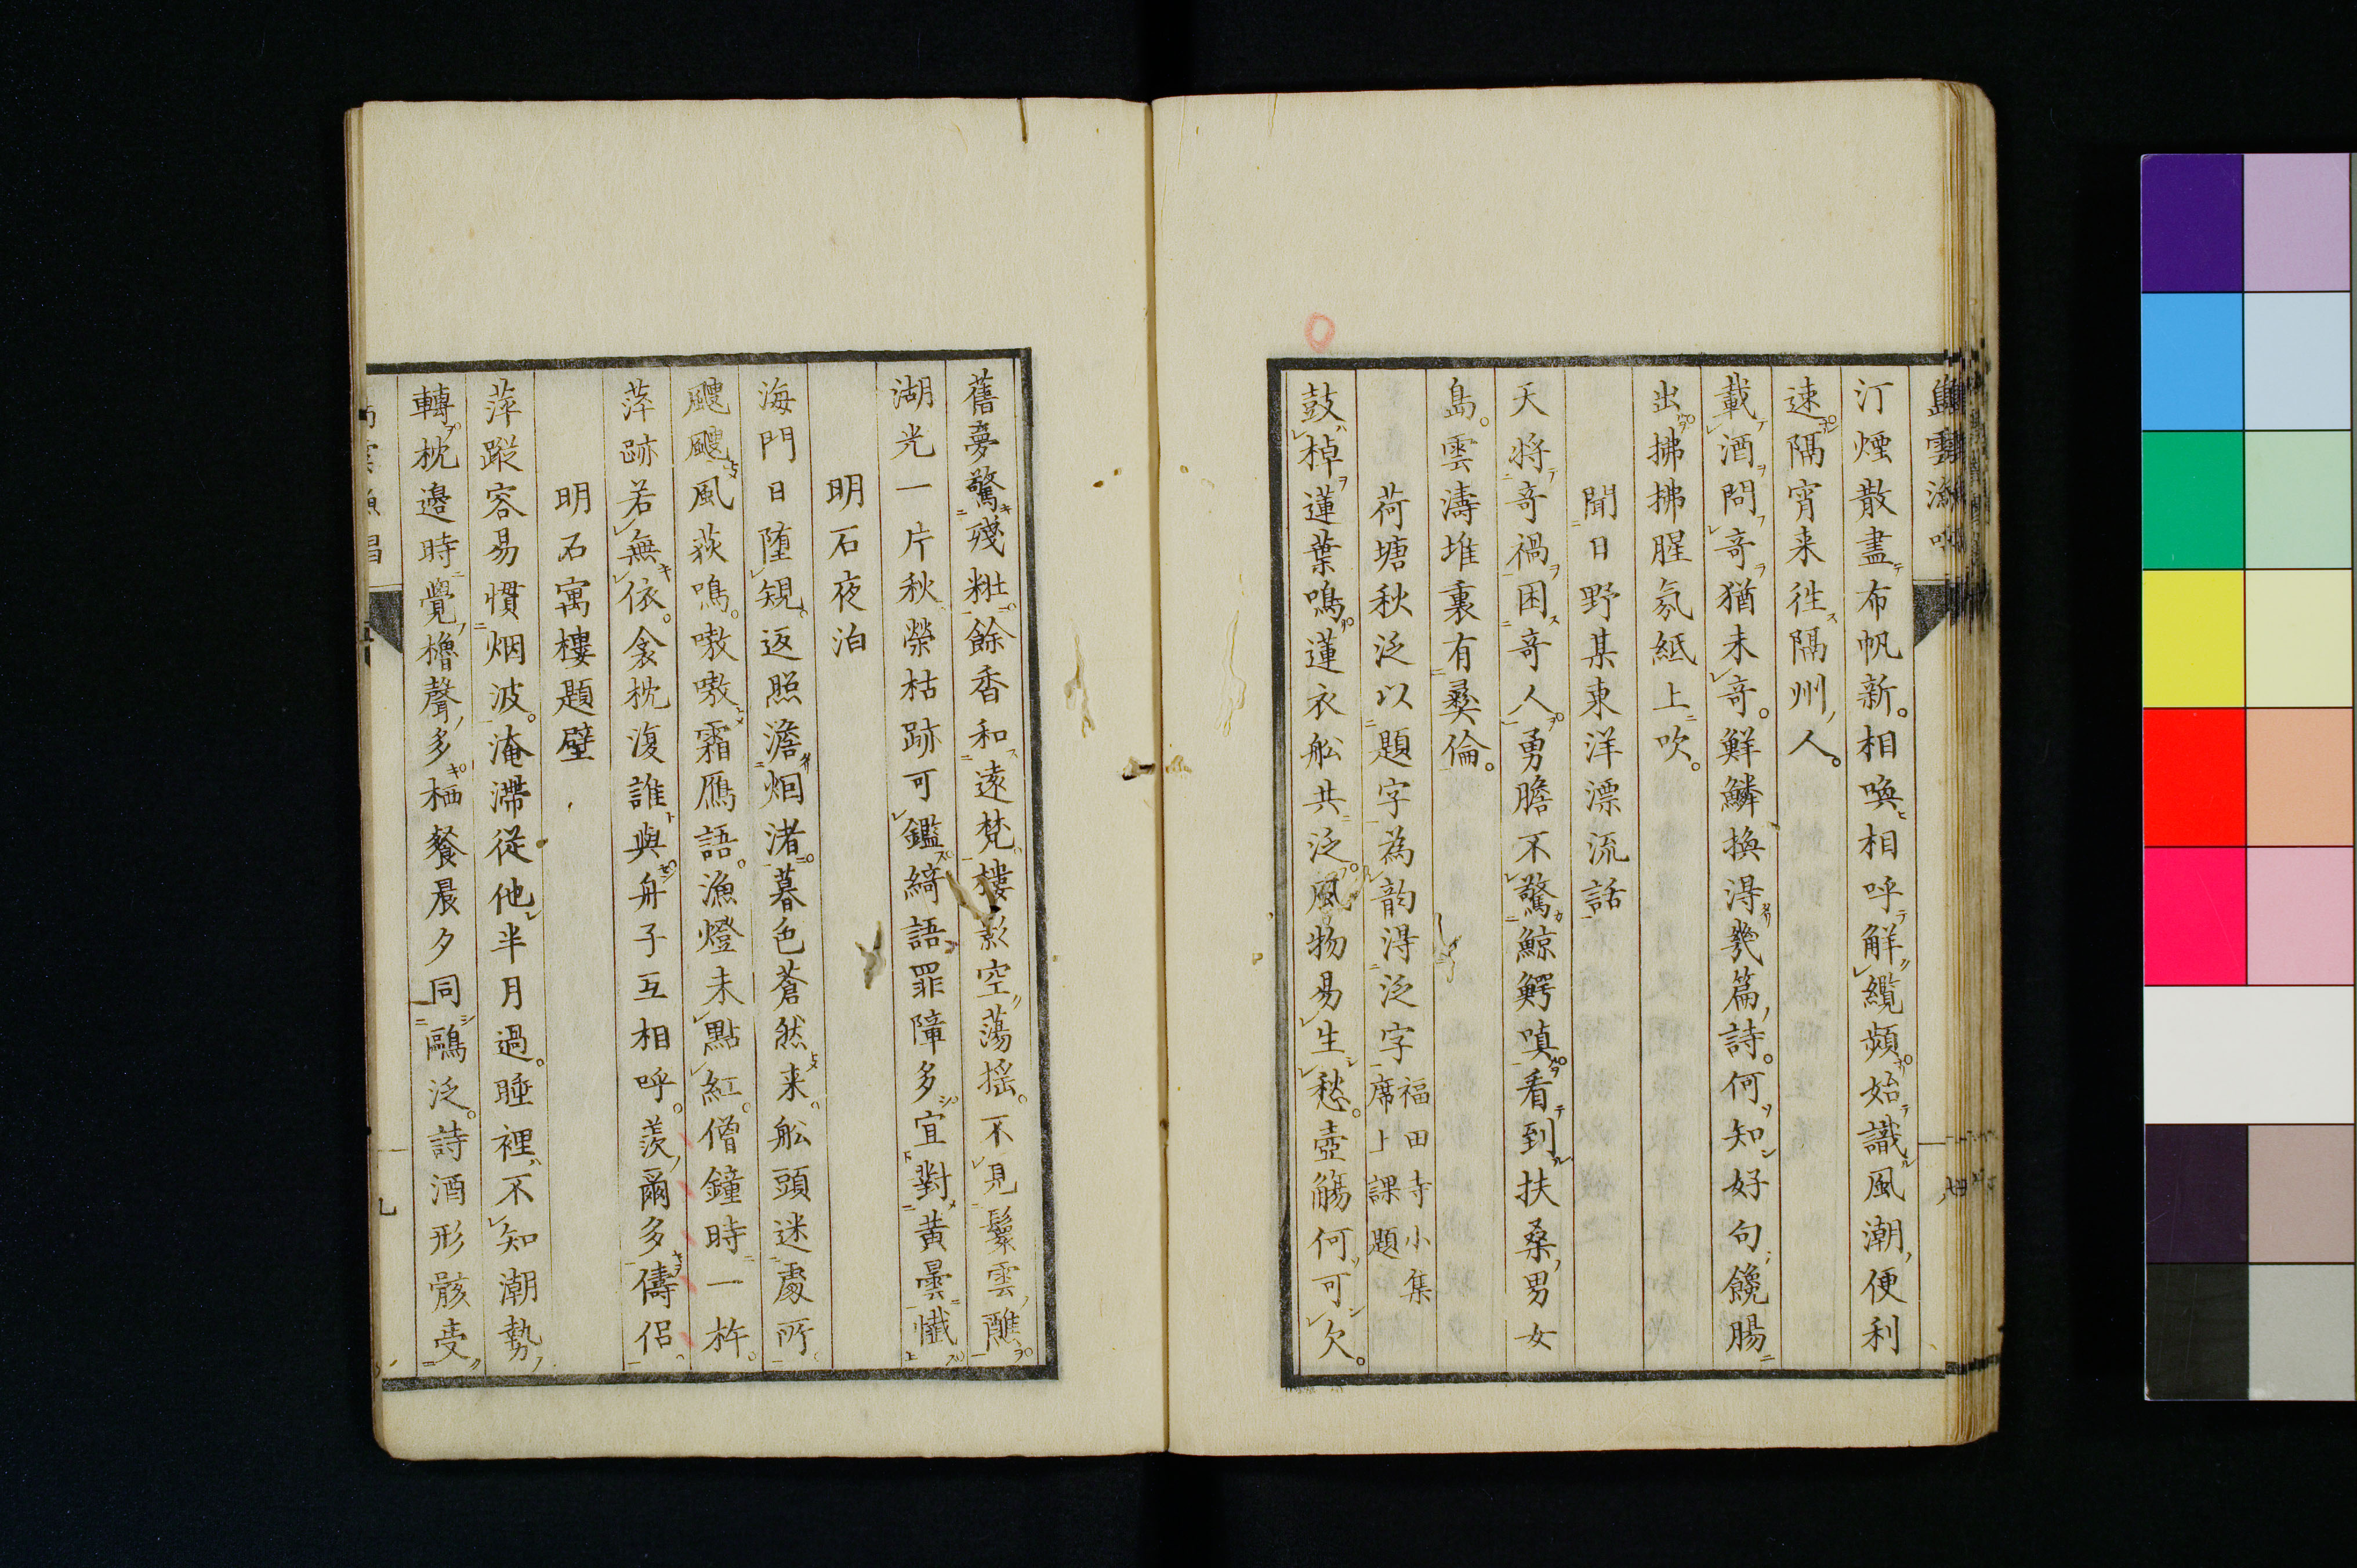 汀煙散盡布帆新。相喚相呼解纜頻。始識風潮便利
速。隔宵来往隔州人。
載酒問奇猶未奇。鮮鱗換得幾篇詩。何知好句饞腸
出。拂拂腥氛紙上吹。
聞日野某東洋漂流話
天将奇禍困奇人。勇膽不驚鯨鰐嗔。看到扶桑男女
島。雲濤堆裏有彜倫。
荷塘秋泛以題字為韵得泛字 福田寺小集
席上課題
鼓棹蓮葉鳴。蓮衣舩共泛。風物易生愁。壺觴何可欠。
舊夢驚殘粧餘香和遠梵。樓影空蕩揺。不見鬟雲醮。
湖光一片秋。榮枯跡可鑑。綺語罪障多。宜對黄曇懺。
明石夜泊
海門日堕規。返照澹烟渚。暮色蒼然来。舩頭迷處所。
颼颼風荻鳴。嗷嗷霜鴈語。漁燈未點紅。僧鐘時一杵。
萍跡若無依。衾枕復誰與。舟子互相呼。羨爾多儔侶。
明石寓樓題壁
萍蹤容易慣烟波。淹滯從他半月過。睡裡不知潮勢
轉。枕邊時覺櫓聲多。栖餐晨夕同鷗泛。詩酒形骸